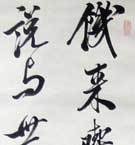 饑來喫
說与世